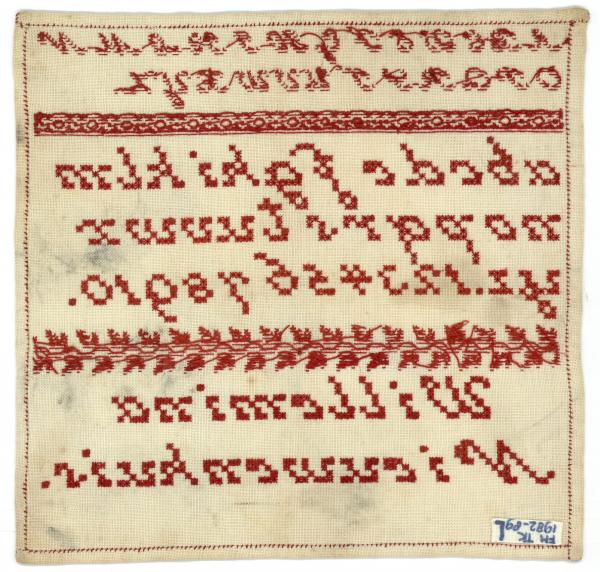 abcdefghijklm
nopqrstuvwx
yz.1234567890.
Willemina
Nieuwenhuis.
FM TK